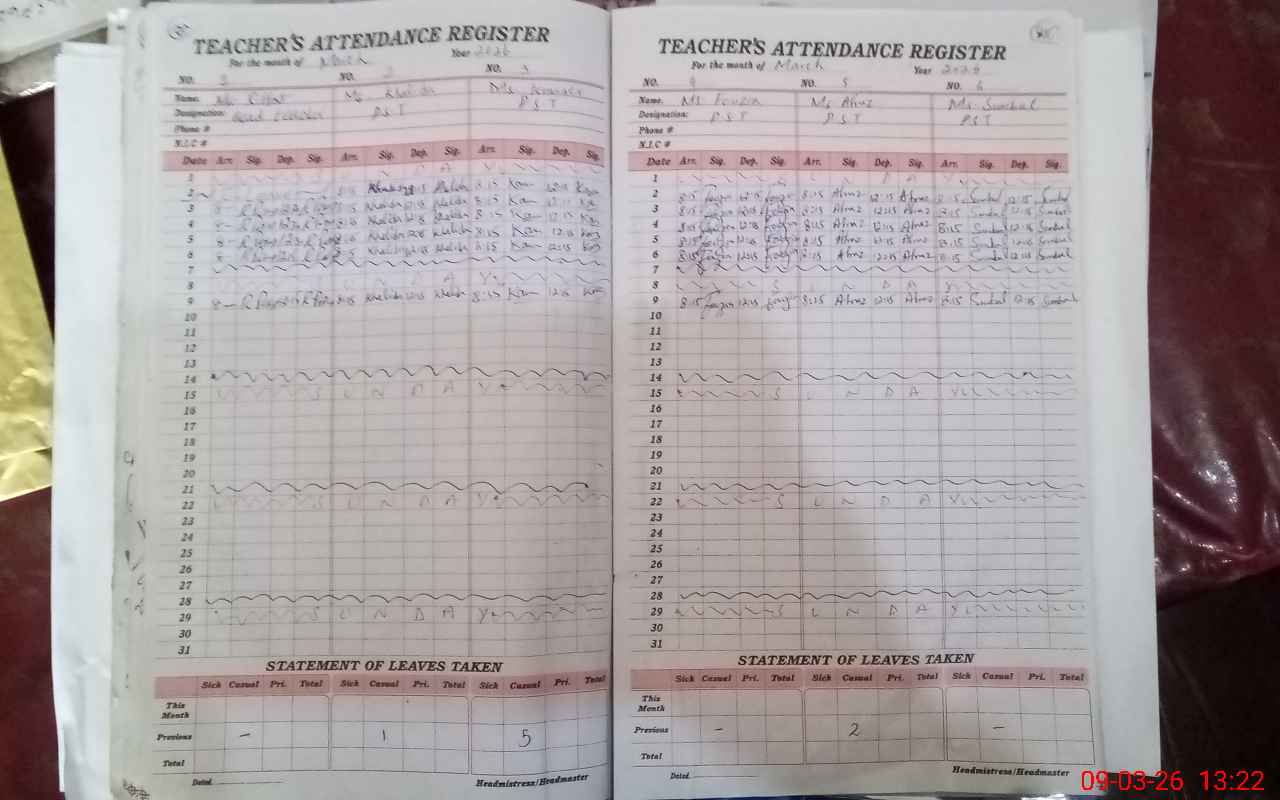 TEACHER'S ATTENDANCE REGISTER
For the month of March Year 2026
NO. NO. 2 NO. 3
Name: Ms Khalida Ms
Designation: PST PST
Phone #
N.I.C #
Date Arr. Sig. Dep. Sig. Arr. Sig. Dep. Sig. Arr. Sig. Dep. Sig.
1 D A Y
2 8:15 Khalida 12:15 Khalida 8:15 Kan 12:15 Kan
3 8 Khalida 12:15 Khalida 8:15 Kan 12:15 Kan
4 8 Khalida 12:15 Khalida 8:15 Kan 12:15 Kan
5 8 Khalida 12:15 Khalida 8:15 Kan 12:15 Kan
6 8 Khalida 12:15 Khalida 8:15 Kan 12:15 Kan
7
8 A Y
9 8 8:15 Khalida 12:15 Khalida 8:15 Kan 12:15 Kan
10
11
12
13
14
15 S U N D A Y
16
17
18
19
20
21
22 S U N D A Y
23
24
25
26
27
28
29 S U N D A Y
30
31
STATEMENT OF LEAVES TAKEN
Sick Casual Pri. Total Sick Casual Pri. Total Sick Casual Pri. Total
This Month
Previous - 1 5
Total
Dated. Headmistress/Headmaster
TEACHER'S ATTENDANCE REGISTER
For the month of March Year 2026
NO. 4 NO. 5 NO. 6
Name. Ms Fouzia Ms Afroz Ms Sumbal
Designation: PST PST PST
Phone #
N.I.C #
Date Arr. Sig. Dep. Sig. Arr. Sig. Dep. Sig. Arr. Sig. Dep. Sig.
1 U N D A Y
2 8:15 Fouzia 12:15 Fouzia 8:15 Afroz 12:15 Afroz 8:15 Sumbal 12:15 Sumbal
3 8:15 Fouzia 12:15 Fouzia 8:15 Afroz 12:15 Afroz 8:15 Sumbal 12:15 Sumbal
4 8:15 Fouzia 12:15 Fouzia 8:15 Afroz 12:15 Afroz 8:15 Sumbal 12:15 Sumbal
5 8:15 Fouzia 12:15 Fouzia 8:15 Afroz 12:15 Afroz 8:15 Sumbal 12:15 Sumbal
6 8:15 Fouzia 12:15 Fouzia 8:15 Afroz 12:15 Afroz 8:15 Sumbal 12:15 Sumbal
7
8 S U N D A Y
9 8:15 Fouzia 12:15 Fouzia 8:15 Afroz 12:15 Afroz 8:15 Sumbal 12:15 Sumbal
10
11
12
13
14
15 S U N D A Y
16
17
18
19
20
21
22 S U N D A Y
23
24
25
26
27
28
29 S U N D A Y
30
31
STATEMENT OF LEAVES TAKEN
Sick Casual Pri. Total Sick Casual Pri. Total Sick Casual Pri. Total
This Month
Previous - 2 -
Total
Dated. Headmistress/Headmaster
09-03-26 13:22